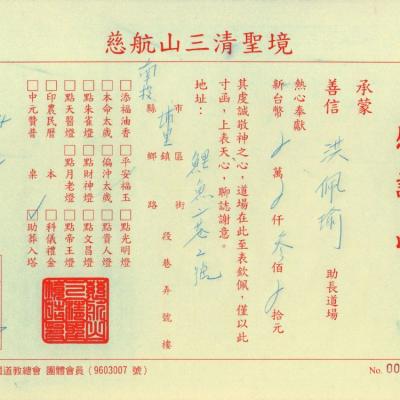 慈航山三清聖境
承蒙
善信 洪佩瑜 助長道場
熱心奉獻
新台幣 萬 仟 叁佰 拾元
其虔誠敬神之心，道場在此至表欽佩，僅以此
寸函，上表天心，聊誌謝意。
地址：南投縣市 埔里鄉鎮區 鯉魚 路街 段巷弄號樓
□添福油香 □平安福玉 □點光明燈
□本命太歲 □偏沖太歲 □點貴人燈
□點朱雀燈 □點財神燈 □點文昌燈
□點天醫燈 □點月老燈 □點帝王燈
□印農民曆 本 □科儀禮金
□中元贊普 桌 ☑助葬入塔
道教總會 團體會員 (9603007 號)
No. 00